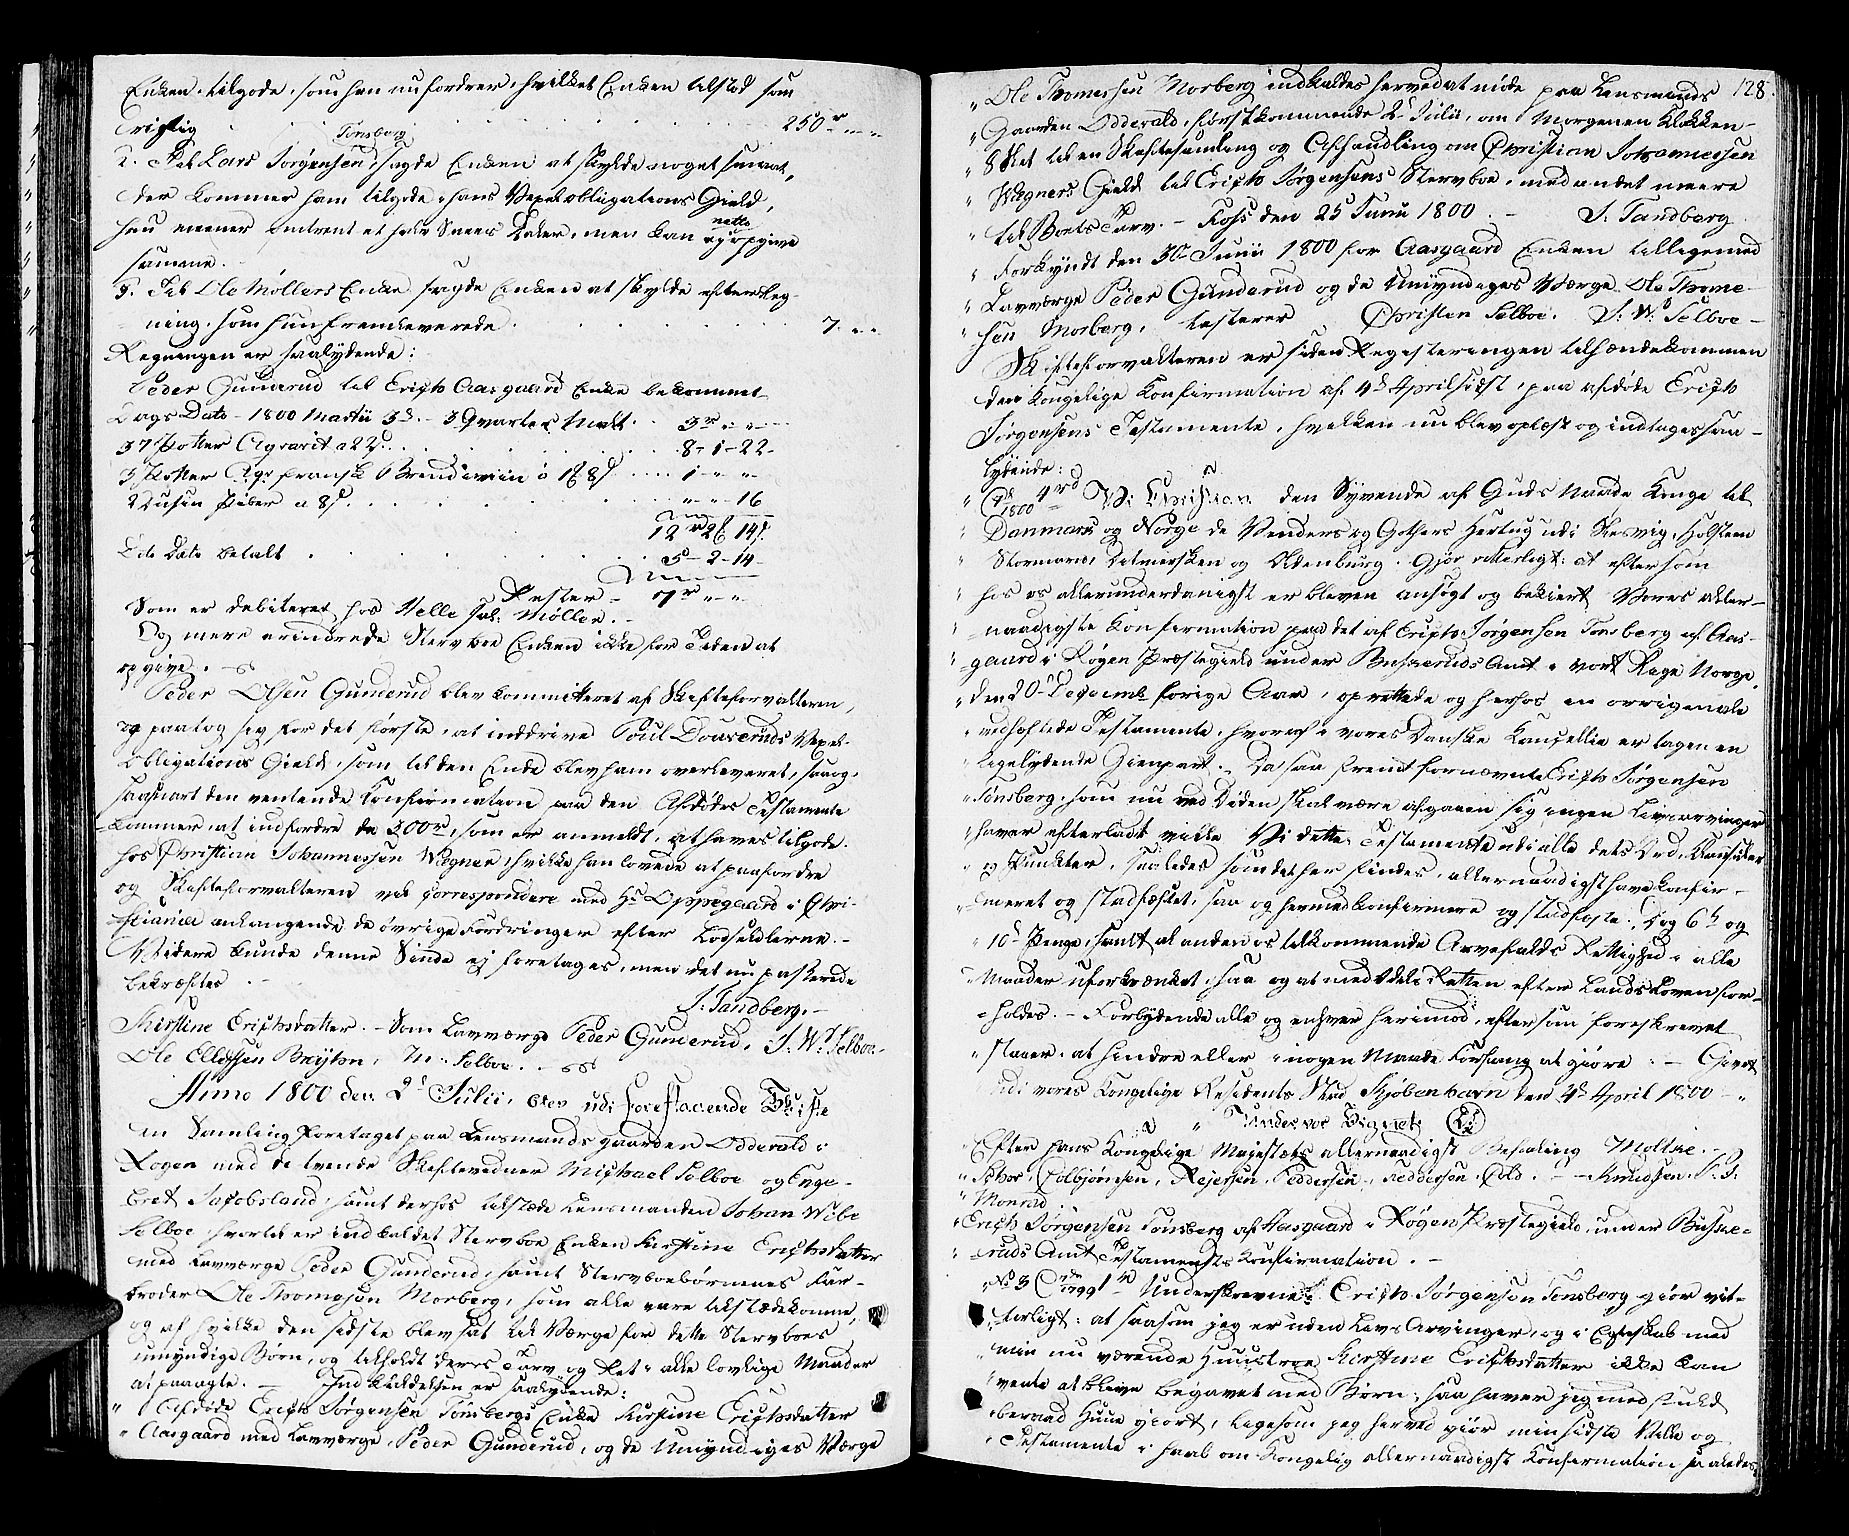 Enken tilgode, som han nu fordrer, hvilket Enken tilstod som
rigtig . . . 250 r „ „
Tønsberg
2. Til Lars Jørgensen, sagde Enken at skylde noget, imod,
der kommer ham tilgode, hans Vexelobligations Gield,
hun meener omtrent et halv Snees Daler, men kan ej opgive
nette
samme.
3. Til Ole Møllers Enke sagde Enken at skylde efter Reg-
ning, som hun fremleverede . . . 7. „ „
Regningen er saalydende:
Peder Gunnerud til Erich Aasgaard Enke bekommet
Dags Dato - 1800 Martii 3d. - 3 Qvarter Malt . . 3 r „ „
37 Potter Aqvavit a 22 s. . . . 8 - 1 - 22 -
3 Potter Dito fransk Brendeviin a 1 ß 8 s . . . 1 - „ „
2 Dusin Piber a 8 s . . . „ „ 16
12 r 2 ß 14 s.
Dito Dato betalt . . . 5 - 2 - 14 -
Rester - 7 r „ „
Som er debiteret hos Velle Sal: Møller. -
Og mere erindrede Stervboe Enken ikke for Tiden at
opgive. -
Peder Olsen Gunderud blev committeret af Skifteforvalteren,
og paatog sig for det første, at inddrive Poul Douseruds Vexel-
Obligations Gield, som til den Ende blev ham overleveret, saa og,
saasnart den ventende Konfirmation paa den Afdødes Testamente
kommer, at indfordre de 300 r, som er anmeldt, at haves tilgode
hos Christian Johannessen Wagner, hvilke han lovede at paafordre
og Skifteforvalteren vil correspondere med Hr Oppegaard i Chri-
stiania anlangende de øvrige Fordringer efter Lodsedlerne. -
Videre kunde denne Sinde ej foretages, men det nu passerede
bekræftes. - J. Tandberg. -
Kirstine Erichsdatter. - Som Lavværge Peder Gunderud. J. W. Selboe -
Ole Ellefsen Brytn. M: Selboe. -
Anno 1800 den 2d Julii, blev udi forestaaende Skifte
en Samling foretaget paa Lensmands gaarden Odderald i
Røgen med de tvende Skiftevidner Michael Selboe og Enge-
bret Jacobsland, samt derhos tilstæde Lensmanden Johan Wibe
Selboe, hvortil er indkaldet Stervboe Enken Kirstine Erichsdatter
med Lavværge Peder Gunderud, samt Stervboebørnenes Far-
broder Ole Thomesen Morberg, som alle vare tilstædekomne,
og af hvilke den sidste blev sat til Værge for dette Stervboes
umyndige Børn, og tilholdt deres Tarv og Ret i alle lovlige Maader
at paaagte. - Indkaldelsen er saalydende:
„ Afdøde Erich Jørgensen Tønsbergs Enke Kirstine Erichsdatter
„ Aasgaard med Lavværge, Peder Gunderud, og de Umyndiges Værge
128.
„ Ole Thomessen Morberg indkaldes herved at møde paa Lensmands
„ Gaarden Odderald, førstkommende 2d Julii, om Morgenen Klokken -
„ 8 slet til en Skiftesamling og Afhandling om Christian Johannessen
„ Wagners Gield til Erich Jørgensens Stervboe, med andet meere
„ til Boets Tarv. - Foss den 25 Junii 1800. - J. Tandberg
„ Forkyndt den 30 Junii 1800 for Aasgaard Enken tilligemed
„ Lavværge Peder Gunderud og de Umyndiges Værge Ole Thome-
„ sen Morberg, testerer Christen Selboe. J. W. Selboe -
Skifteforvalteren er siden Registeringen tilhændekommen
den Kongelige Konfirmation af 4d April sidst, paa afdøde Erich
Jørgensens Testamente, hvilken nu blev oplæst og indtages saa-
lydende:
„ 1800 4 rd Vi Christian den Syvende af Guds Naade Konge til
„ Danmark og Norge de Venders og Gothers Hertug udi Slesvig, Holsteen
„ Stormarn, Ditmersken og Oldenburg. Gjør vitterligt: at eftersom
„ hos os allerunderdanigst er bleven ansøgt og begiert Vores aller-
„ naadigste Konfirmation paa det af Erich Jørgensen Tønsberg af Aas-
„ gaard i Røgen Præstegield under Buskeruds Amt i vort Rige Norge,
„ den 20 Decembr forige Aar, oprettede og herhos en orriginale
„ vedheftede Testamente, hvoraf i vores Danske Kancellie er tagen en
„ ligelydende Gienpart. Da saa fremt fornævnte Erich Jørgensen
„ Tønsberg, som nu ved Døden skal være afgaaen sig ingen Livsarvinger
„ haver efterladt ville Vi dette Testamente udi alle dets Ord, Klausuler
„ og Puncter, saaledes som det her findes, allernaadigst have konfir-
„ meret og stadfæstet, saa og hermed konfirmere og stadfæste. Dog 6te og
„ 10de Penge, samt al anden os tilkommende Arvefalds Rettighed i alle
„ Maader uforkrænket, saa og at med Odels Retten efter Lands Loven for-
„ holdes. - Forbydende alle og enhver herimod, eftersom foreskrevet
„ staaer, at hindre eller i nogen Maade Forfang at giøre. - Givet
„ udi vores Kongelige Residents Stad Kjøbenhavn den 4d April 1800 - „
„ Under vor Signet (L.S.)
„ Efter hans Kongelige Majestæts allernaadigst Befaling Moltke. -
„ Schow. Colbjørnsen, Rejersen, Feddersen, Feddersen, Cold. - Knudsen. P. J.
„ Monrad.
„ Erich Jørgensen Tønsberg af Aasgaard i Røgen Præstegield, under Buske-
„ ruds Amt Testaments Konfirmation. -
„ No 3 1799 Underskrevne Erich Jørgensen Tønsberg giør vit-
„ terligt: at saasom jeg er uden Livs Arvinger, og i Egteskab med
„ min nu værende Huustroe Kirstine Erichsdatter ikke kan
„ vente at blive begavet med Børn; saa haver jeg med fuld
„ beraad Huue giort, ligesom jeg herved giør min sidste Villie og
„ Testamente i Haab om Kongelig allernaadigst Konfirmation saaledes,